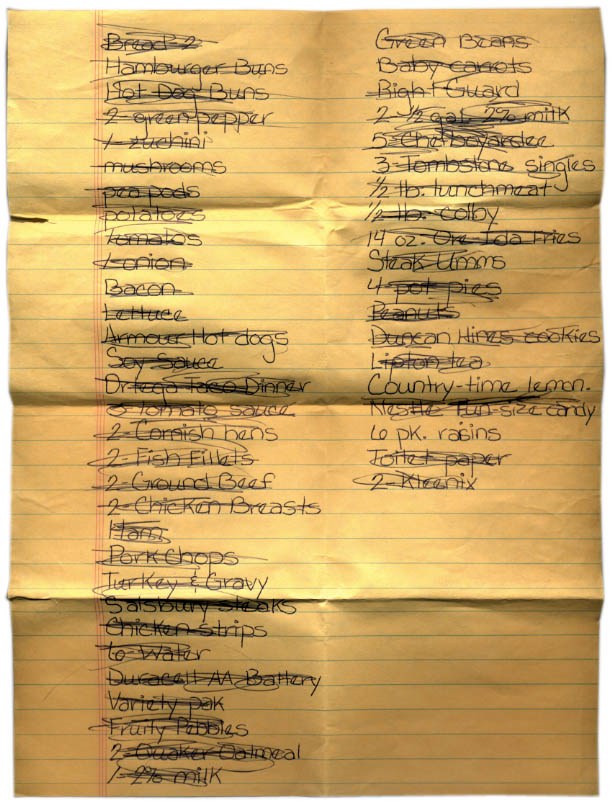 Bread 2
Hamburger Buns
Hot Dog Buns
2-green pepper
1-zuchini
mushrooms
pea pods
potatoes
Tomatos
1-onion
Bacon
Lettuce
Armour Hot dogs
Soy Sauce
Ortega Taco Dinner
3 Tomato sauce
2-Cornish hens
2-Fish Fillets
2-Ground Beef
2-Chicken Breasts
Ham
Pork Chops
Turkey & Gravy
Salsbury steaks
Chicken strips
Water
Duracell AA Battery
Variety pak
Fruity Pebbles
2-Quaker Oatmeal
1-2% milk
Green Beans
Baby carrots
Right Guard
2-½ gal 2% milk
5-Chefboyardee
3-Tombstone singles
½ lb. lunchmeat
½ lb. colby
14 oz. Ore Ida Fries
Steak Umms
4 pot pies
Peanuts
Duncan Hines cookies
Lipton tea
Country-time lemon.
Nestle Fun-size candy
6 pk. raisins
Toilet paper
2-Kleenix